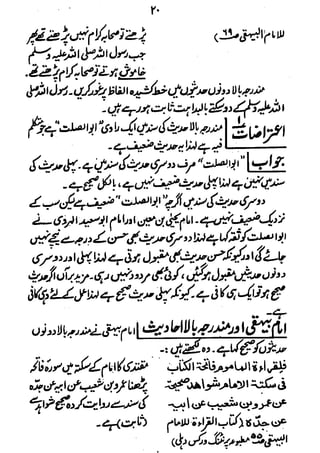 ۲۰
للامام البیہقی ص ۶۹)
پڑھتے تو صحابہ کرام نہیں پڑھتے تھے پھر
جب رسول اللہ صلی اللہ علیہ وسلم
خاموش ہوتے تو صحابہ کرام پڑھتے تھے۔
مندرجہ بالا دونوں حدیثوں میں خط کشیدہ الفاظ پر غور کریں۔ رسول اللہ صلی
اللہ علیہ وسلم کے دو سکتے بالبداہت ثابت ہو رہے ہیں۔
اعتراض ۱ مندرجہ بالا حدیث کی سند میں ایک راوی "ابو الصلت" ہے جو متکلم
فیہ ہے لہذا یہ حدیث ضعیف ہے۔
جواب "ابو الصلت" صرف دوسری حدیث کی سند میں ہے۔ پہلی حدیث کی
سند میں نہیں ہے لہذا پہلی حدیث ضعیف نہیں ہے، بالکل صحیح ہے۔
دوسری حدیث کی سند میں اگرچہ "ابو الصلت" ضعیف ہے لیکن سب کے
نزدیک ضعیف نہیں ہے۔ امام یحیٰی بن معین اور امام ابو سعید الہروی نے
ابو الصلت کو ثقہ کہا ہے لہذا دوسری حدیث بھی حسن کے درجہ سے نیچے نہیں
جائے گی اور کیونکہ حسن حدیث بھی مقبول ہوتی ہے لہذا پہلی اور دوسری
دونوں حدیثیں مقبول ہو گئیں، کوئی بھی مردود نہیں رہی۔ مزید براں اگر حدیث
صحیح ہو تو ایک ہی کافی ہے۔ کیونکہ پہلی حدیث صحیح ہے لہذا عمل کے لئے وہی کافی
ہے۔
امام بیہقی اور مندرجہ بالا احادیث امام بیہقی نے مندرجہ بالا دونوں
حدیثوں کو صحیح کہا ہے۔ وہ لکھتے ہیں:
فقراءة الماموم فاتحة الكتاب
فى سكتة الامام شواهد صحيحة
عن عمرو بن شعيب عن ابيه
عن جده (كتاب القراءة للامام
البيهقى ص
مقتدی کا امام کے سکتہ میں سورۃ فاتحہ
پڑھنا عمرو بن شعیب عن ابیہ عن جدہ
کی سند سے روایت کردہ صحیح شواہد سے
(ثابت) ہے۔